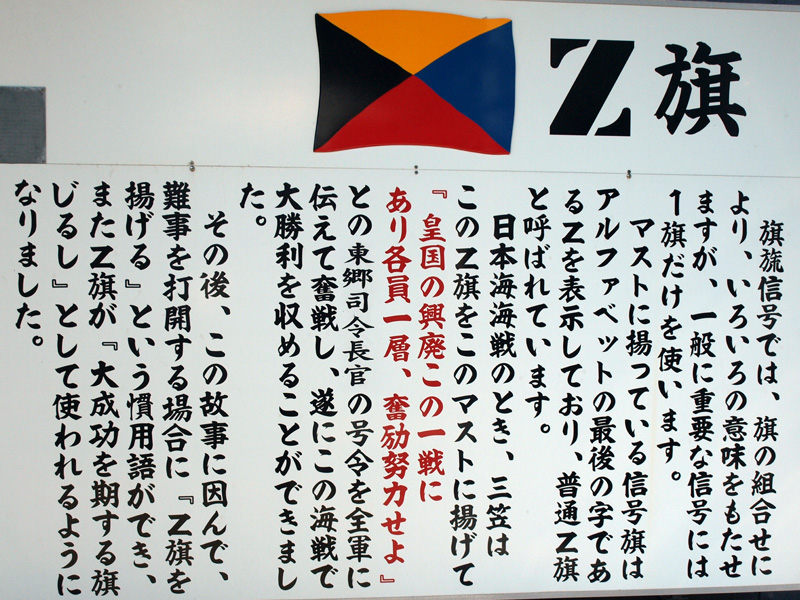 Z旗
旗旒信号では、旗の組合せに
より、いろいろの意味をもたせ
ますが、一般に重要な信号には
1旗だけを使います。
マストに揚っている信号旗は
アルファベットの最後の字であ
るZを表示しており、普通Z旗
と呼ばれています。
日本海海戦のとき、三笠は
このZ旗をこのマストに揚げて
『皇国の興廃この一戦に
あり各員一層、奮励努力せよ』
との東郷司令長官の号令を全軍に
伝えて奮戦し、遂にこの海戦で
大勝利を収めることができまし
た。
その後、この故事に因んで、
難事を打開する場合に『Z旗を
揚げる』という慣用語ができ、
またZ旗が『大成功を期する旗
じるし』として使われるように
なりました。